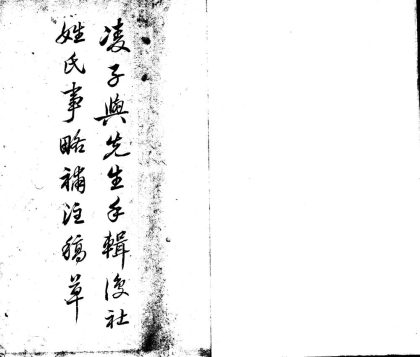 凌子與先生手輯復社
姓氏事略補注稿草